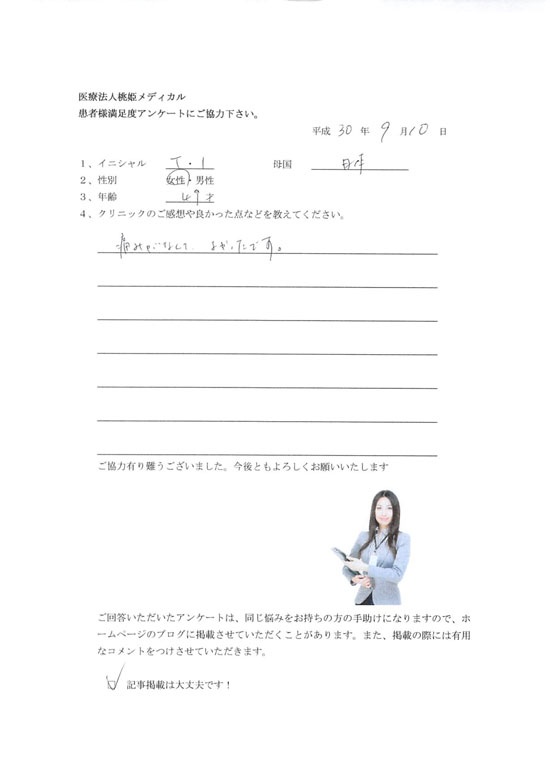 医療法人桃姫メディカル
患者様満足度アンケートにご協力下さい。
平成 30 年 9 月 10 日
1、イニシャル T・I 母国 日本
2、性別 女性・男性
3、年齢 49才
4、クリニックのご感想や良かった点などを教えてください。
痛みが なくて よかったです。
ご協力有り難うございました。今後ともよろしくお願いいたします
ご回答いただいたアンケートは、同じ悩みをお持ちの方の手助けになりますので、ホ
ームページのブログに掲載させていただくことがあります。また、掲載の際には有用
なコメントをつけさせていただきます。
☑ 記事掲載は大丈夫です！